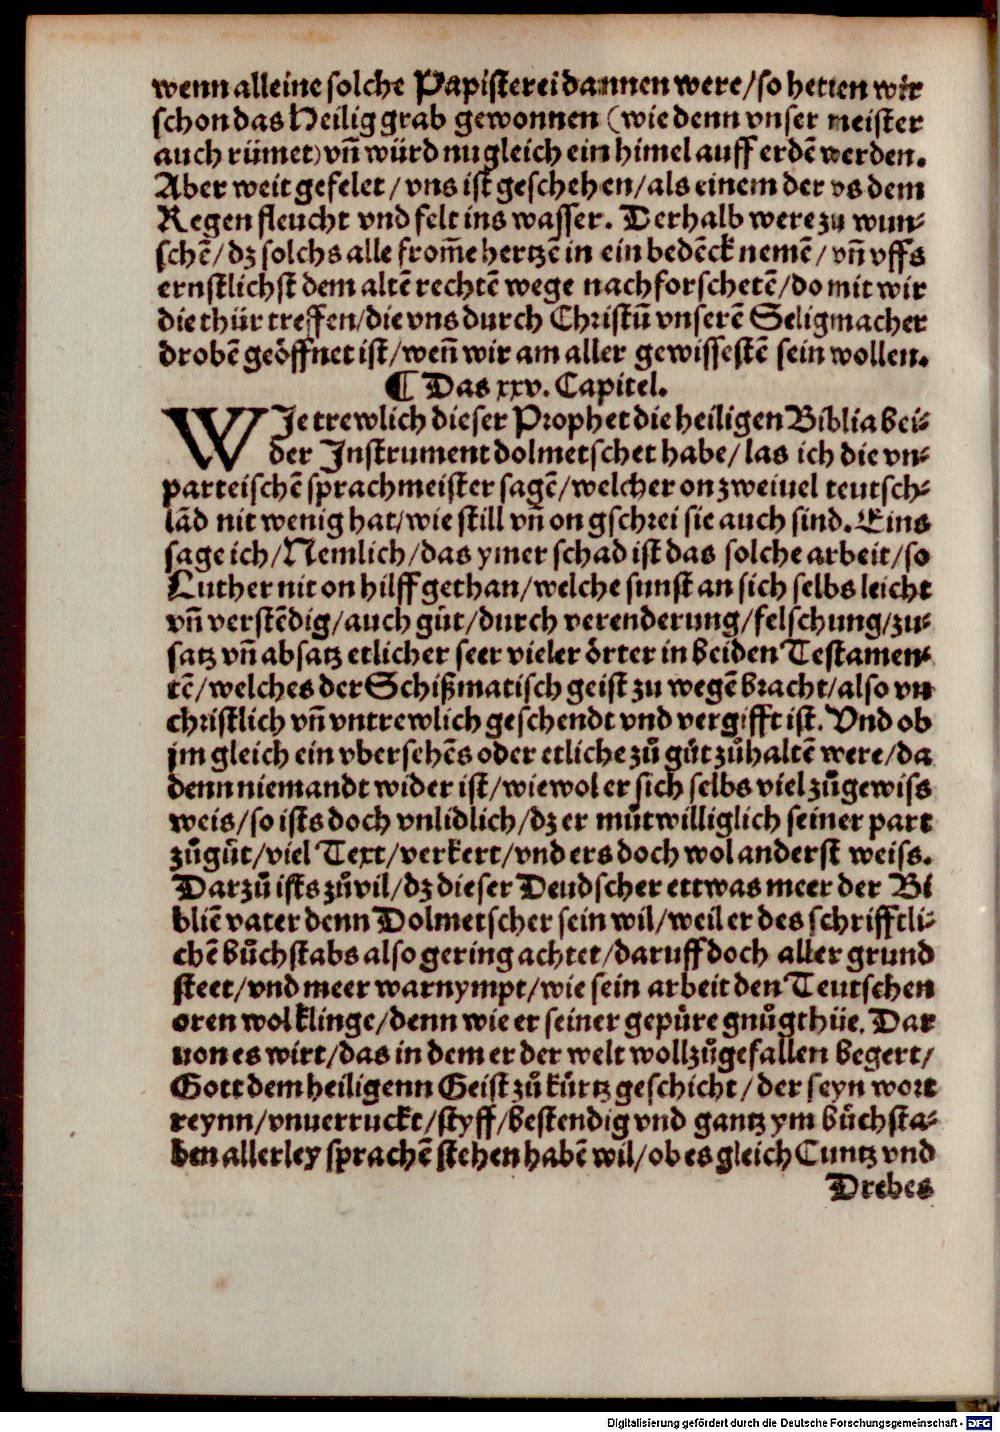 wenn alleine solche Papisterei dannen were/so hetten wir
schon das Heilig grab gewonnen (wie denn vnser meister
auch rümet) vñ würd nu gleich ein himel auff erdē werden.
Aber weit gefelet/vns ist geschehen/als einem der vs dem
Regen fleucht vnd felt ins wasser. Derhalb were zu wun-
schē/dz solchs alle from̄e hertzē in ein bedēck nemē/vñ vffs
ernstlichst dem altē rechtē wege nachforschetē/do mit wir
die thür treffen/die vns durch Christū vnserē Seligmacher
drobē geöffnet ist/weñ wir am aller gewissestē sein wollen.
¶ Das xxv. Capitel.
WJe trewlich dieser Prophet die heiligen Biblia bei-
der Instrument dolmetschet habe/las ich die vn-
parteischē sprachmeister sagē/welcher on zweiuel teutsch-
lād nit wenig hat/wie still vñ on gschrei sie auch sind. Eins
sage ich/Nemlich/das ymer schad ist das solche arbeit/so
Luther nit on hilff gethan/welche sunst an sich selbs leicht
vñ verstēdig/auch gůt/durch verenderung/felschung/zu-
satz vñ absatz etlicher seer vieler örter in beiden Testamen-
tē/welches der Schißmatisch geist zu wegē bracht/also vn
christlich vñ vntrewlich geschendt vnd vergifft ist. Vnd ob
jm gleich ein vbersehēs oder etliche zů gůt zůhaltē were/da
denn niemandt wider ist/wiewol er sich selbs viel zůgewiss
weis/so ists doch vnlidlich/dz er můtwilliglich seiner part
zůgůt/viel Text/verkert/vnd ers doch wol anderst weiss.
Darzů ists zůvil/dz dieser Deudscher ettwas meer der Bi
bliē vater denn Dolmetscher sein wil/weil er des schrifftli-
chē bůchstabs also gering achtet/daruff doch aller grund
steet/vnd meer warnympt/wie sein arbeit den Teutschen
oren wol klinge/denn wie er seiner gepůre gnůgthüe. Dar
uon es wirt/das in dem er der welt wollzůgefallen begert/
Gott dem heiligenn Geist zů kůrtz geschicht/der seyn wort
reynn/vnuerruckt/styff/bestendig vnd gantz ym bůchsta-
ben allerley sprachē stehen habē wil/ob es gleich Cuntz vnd
Drebes
Digitalisierung gefördert durch die Deutsche Forschungsgemeinschaft - DFG